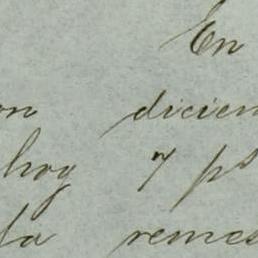 En
on dicien
hoy 7 ps
la remes